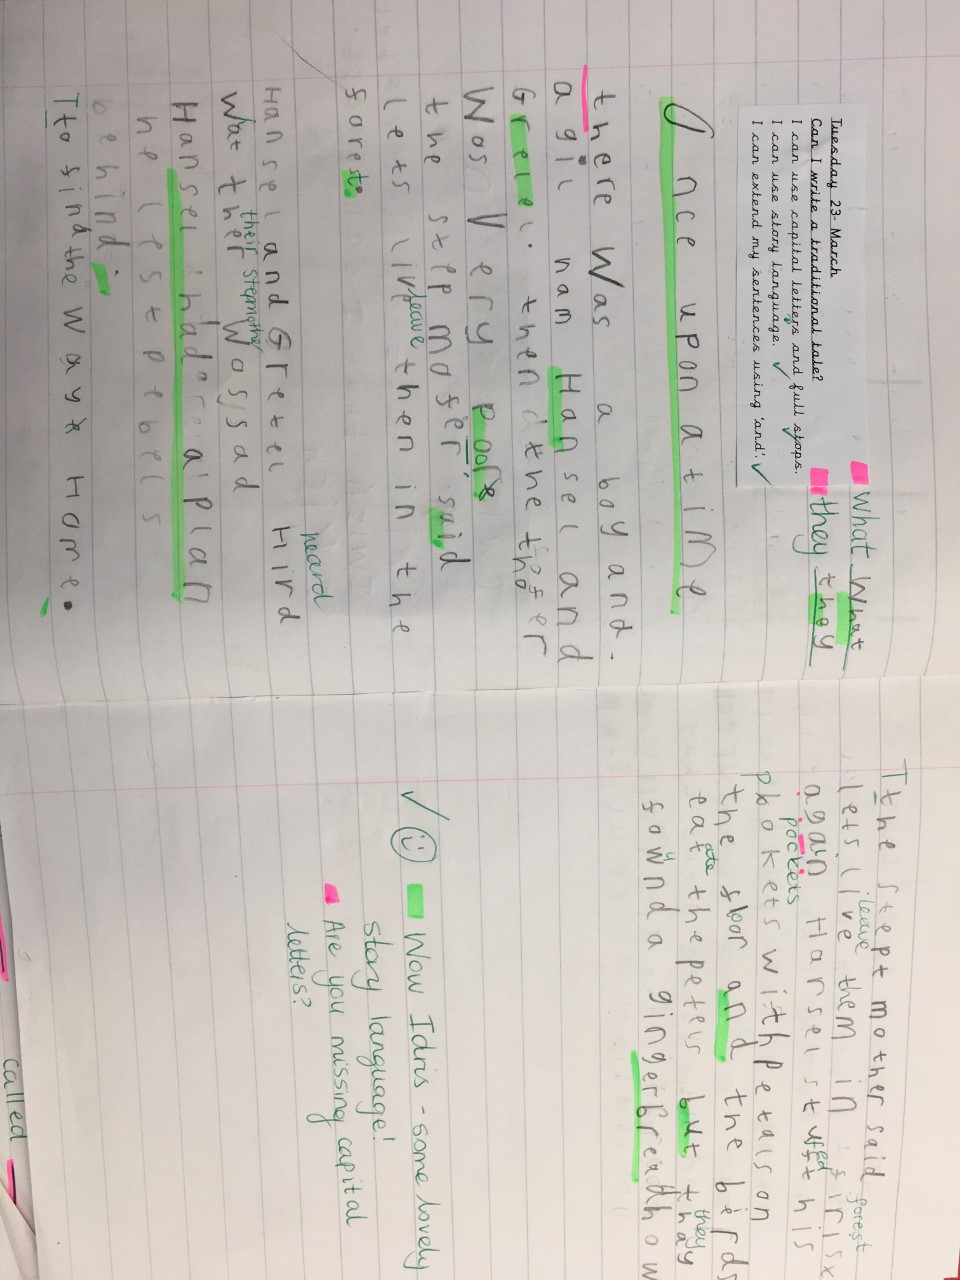 Tuesday 23. March
Can I write a traditional tale?
I can use capital letters and full stops.
I can use story language.
I can extend my sentences using 'and'.
what What
they they
Once upon a time
there was a boy and.
a gil nam Hansel and
Gretel. then the
Wos Very poor
the step mofer said
lets live then in the
leave
forest.
heard
Hansel and Gretel Hird
Wat ther Wos sad
their stepmother
Hansel had a plan
he left pebels
behind.
To find the way Home.
The stept mother said
lets live them in
leave forest
again Hansel stufft his
pockets
pokets with petals on
the floor and the berds
eat the petels but thay
ate they
fownd a gingerbread how
✓ Wow Idris - some lovely
story language!
Are you missing capital
letters?
called